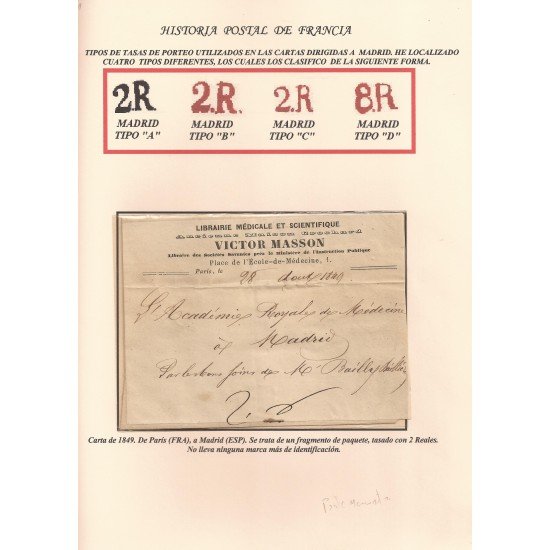 HISTORIA POSTAL DE FRANCIA
TIPOS DE TASAS DE PORTEO UTILIZADOS EN LAS CARTAS DIRIGIDAS A MADRID. HE LOCALIZADO
CUATRO TIPOS DIFERENTES, LOS CUALES LOS CLASIFICO DE LA SIGUIENTE FORMA.
2R 2.R. 2.R 8.R
MADRID MADRID MADRID MADRID
TIPO "A" TIPO "B" TIPO "C" TIPO "D"
LIBRAIRIE MÉDICALE ET SCIENTIFIQUE
Ancienne Maison Crochard
VICTOR MASSON
Libraire des Sociétés Savantes près le Ministère de l'Instruction Publique
Place de l'École-de-Médecine, 1.
Paris, le 28 Août 1849
L'Académie Royale de Médecine
à Madrid
Par les bons soins de Mr Bailly Baillière
Carta de 1849. De París (FRA), a Madrid (ESP). Se trata de un fragmento de paquete, tasado con 2 Reales.
No lleva ninguna marca más de identificación.